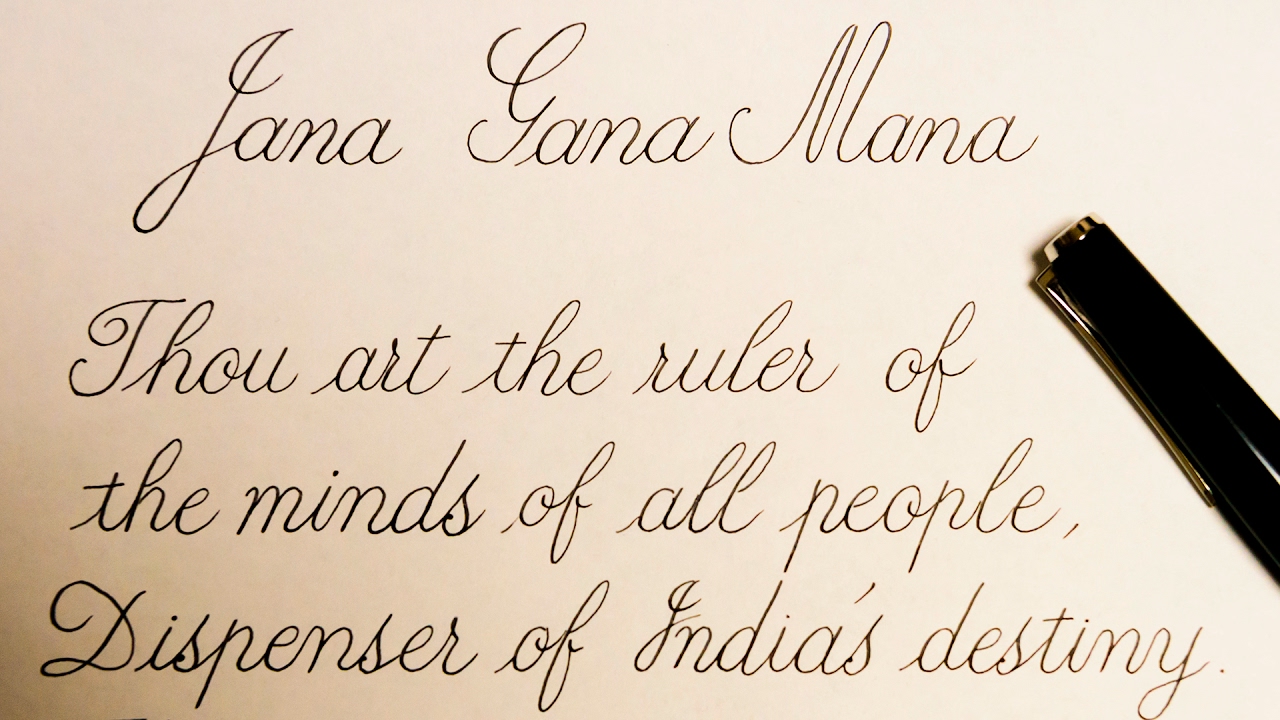 Jana Gana Mana
Thou art the ruler of
the minds of all people,
Dispenser of India's destiny.